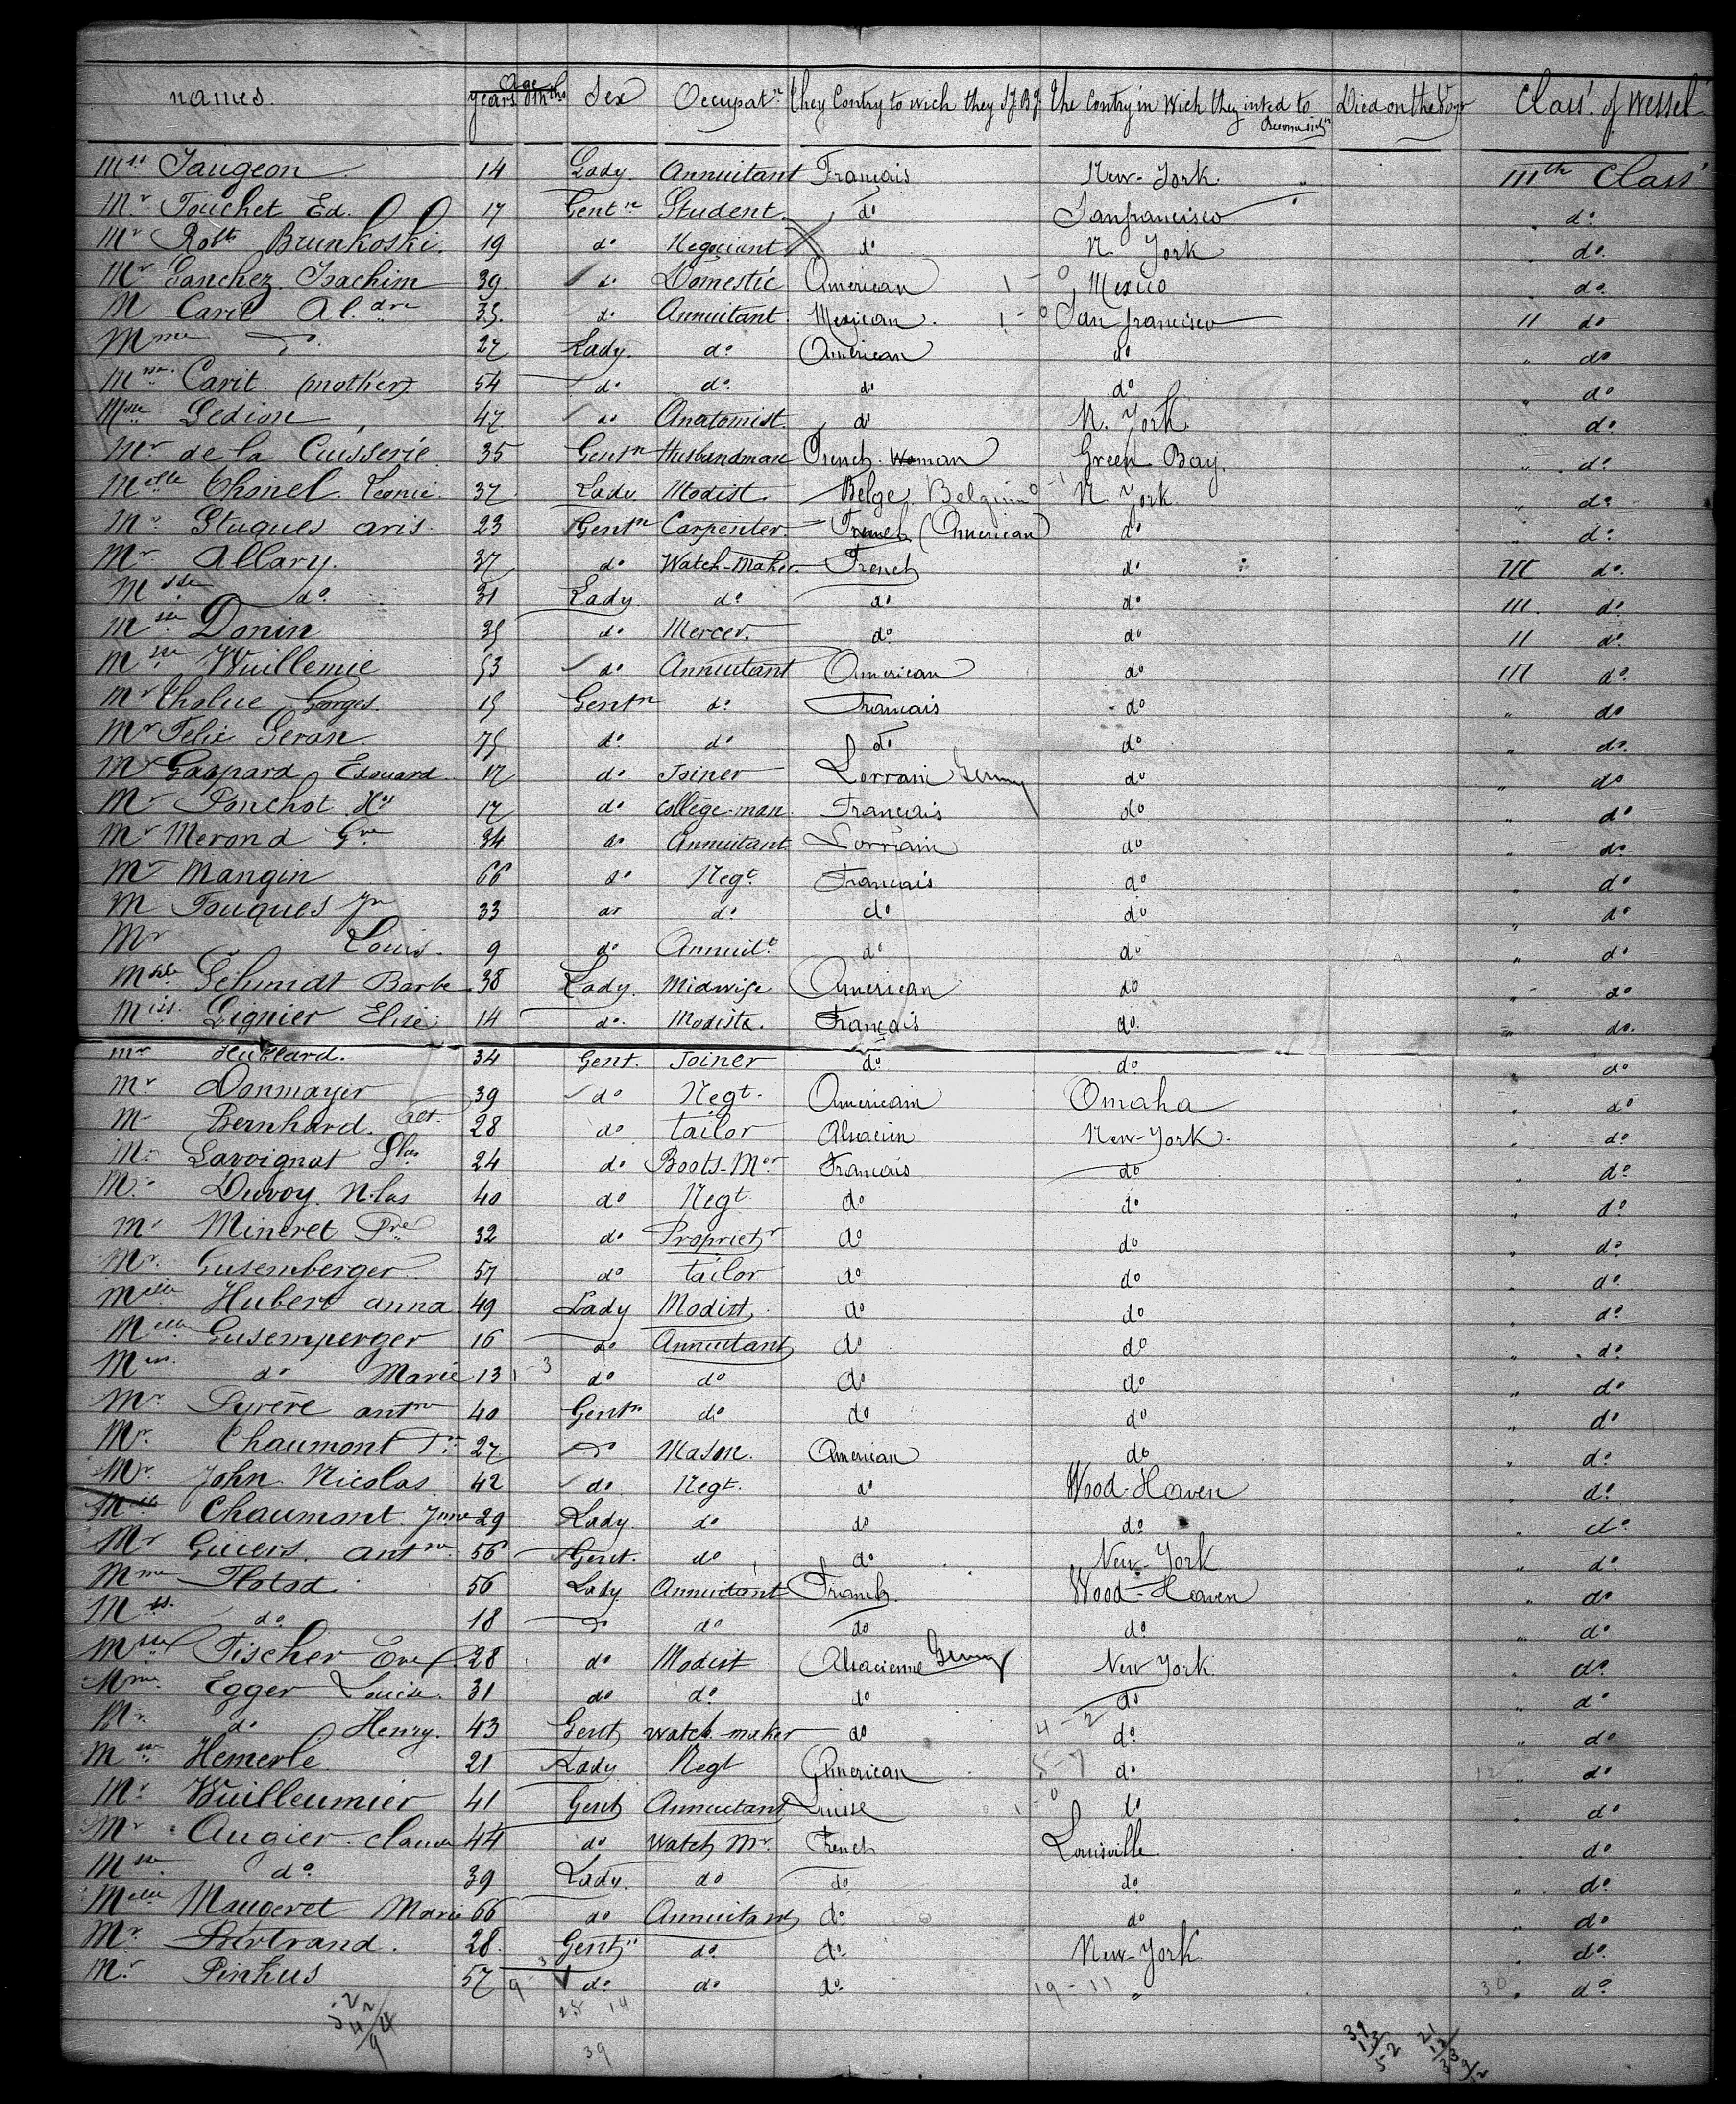 names. Age years Mths Sex Occupatn They Contry to wich they The Contry in Wich they inted to Become Died on the Voye Class'. of Wessel
Mss Jaugeon 14 Lady. Annuitant Français New-York. " IIIth Class'
Mr Touchet Ed. 17 Gentn Student. do Sanfrancisco do.
Mr Robts Brunkoski. 19 do Negociant do N. York do.
Mr Sanchez Joachim 39. do Domestic American 1 - 0 Mexico do.
M Carit Al.dre 35. do Annuitant. Mexican. 1 - 0 San francisco II do
Mme do. 27 Lady. do. American do " do
Mme. Carit. (mother) 54 do. do. do do " do
Mme Gedion 47 do Anatomist. do N. York. " do.
Mr de la Cuisserie 35 Gentn Husbandman French. Woman Green Bay. " do.
Melle Thonel. Leonie. 37 Lady Modist. Belge. Belgium 0 - 1 N. York. " do.
Mr Stuques aris. 23 Gentn Carpenter. French (American) do " do.
Mr Allary. 37 do Watch-Maker. French do. III do.
M do. 31 Lady. do. do do III. do.
M Donin 35 do. Mercer. do. do II do.
M Wuillemie 53 do Annuitant American do III do.
Mr Tholue Gorges. 15 Gentn do. Francais do " do
Mr Felix Geran 75 do. do. do do " do.
Mr Gaspard Edouard 17 do. Joiner Lorrain Germy do " do
Mr Ponchot Hri 17 do. Collège-man. Français do " do
Mr Merond Gve 34 do Annuitant. Lorrain do " do.
Mr Mangin 66 do Negt. Francais do " do
M Fouques Jn 33 do do. do do " do
Mr Louis. 9 do Annuit. do do " do
Melle Schmidt Barbe 38 Lady. Midwife American do " do
Miss. Gignier Elise 14 do. Modiste. Français do. " do.
Mr Hullard. 34 Gent. Joiner do. do " do
Mr Donmayer 39 do Negt. American Omaha " do
Mr Bernhard. 28 do tailor Alsacien New-York. " do.
Mr Lavoignat 24 do Boots-Mer Francais do " do.
Mr Duvoy. N.las 40 do Negt. do do " do.
Mr Mineret Pre 32 do Proprietr do do " do.
Mr. Gusemberger 57 do tailor do do " do.
Melle Hubert anna 49 Lady Modist. do do " do.
Melle Gusemperger 16 do Annuitant do do " do.
Miss. do Marie 13 1 - 3 do do do do " do
Mr. Syrère antne 40 Gentn do do do " do.
Mr. Chaumont 27 do Mason. American do " do.
Mr. John Nicolas 42 do. Negt. do Wood-Haven " do.
Chaumont. 29 Lady. do do do. " do.
Mr Guiers. antne. 56 Gent. do do New-York " do.
Mme Flotad 56 Lady Annuitant French. Wood-Haven " do
Mss. do. 18 do do do do. " do
Fischer Eve 28 do Modist Alsacienne Germy New York. " do.
Mme. Egger Louise. 31 do do. do do " do
Mr. do. Henry. 43 Gent watch-maker do 4 - 2 do. " do.
Hemerle. 21 Lady Negt American 5 - 7 do. 12 " do
Mr Wuilleumier 41 Gent Annuitant Suisse 1 - 0 do " do.
Mr Augier. claude 44 do Watch Mr. French Louisville " do.
do. 39 Lady. do do. do. " do.
Melle Maugeret Marie 66 do Annuitant do. do " do
Mr. Bertrand. 28. Gentn do. do. New-York " do.
Mr Pinhus 57 9 - 3 do. do do. 19 - 11 " 30 " do
28 14
39
39 13 52